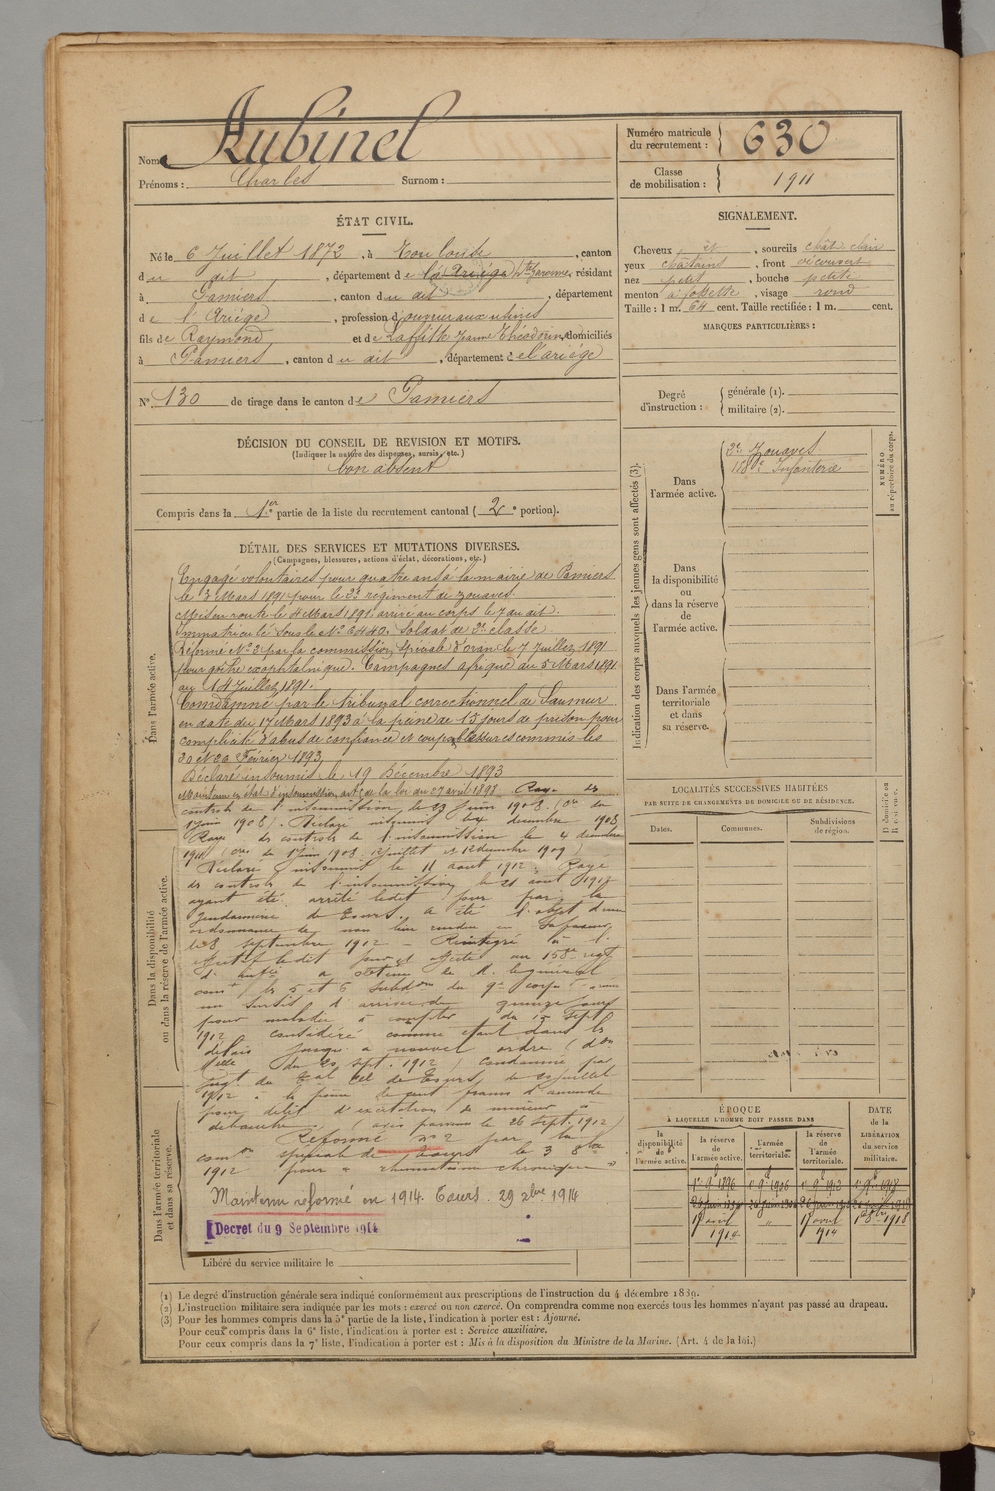 Nom Aubinel
Prénoms : Charles Surnom :
Numéro matricule du recrutement : 630
Classe de mobilisation : 1911
ÉTAT CIVIL.
Né le 6 Juillet 1872, à Toulouse, canton
du dit, département de la Ariège Hte Garonne, résidant
à Pamiers, canton du dit, département
de l'Ariège, profession d'ouvrier aux usines
fils de Raymond et de Laffitte Jeanne Théodorine, domiciliés
à Pamiers, canton du dit, département de l'ariège
N° 130 de tirage dans le canton de Pamiers
DÉCISION DU CONSEIL DE REVISION ET MOTIFS.
(Indiquer la nature des dispenses, sursis, etc.)
bon absent
Compris dans la 1re partie de la liste du recrutement cantonal (2e portion).
SIGNALEMENT.
Cheveux et, sourcils châtain
yeux châtains, front découvert
nez petit, bouche petite
menton à fossette, visage rond
Taille : 1 m. 64 cent. Taille rectifiée : 1 m. cent.
MARQUES PARTICULIÈRES :
Degré d'instruction : générale (1).
militaire (2).
Indication des corps auxquels les jeunes gens sont affectés (3).
NUMÉRO au répertoire du corps.
Dans l'armée active.
2e Zouaves
158e Infanterie
Dans la disponibilité ou dans la réserve de l'armée active.
Dans l'armée territoriale et dans sa réserve.
DÉTAIL DES SERVICES ET MUTATIONS DIVERSES.
(Campagnes, blessures, actions d'éclat, décorations, etc.)
Dans l'armée active.
Engagé volontaires pour quatre ans à la mairie de Pamiers
le 3 Mars 1891 pour le 2e régiment de zouaves
Mis en route le 4 Mars 1891, arrivé au corps le 7 au dit.
Immatriculé sous le N° 6440. Soldat de 2e classe
Réformé N° 2 par la commission spéciale d'oran le 7 Juillet 1891
pour goître exophtalmique. Campagnes afrique du 5 Mars 1891
au 14 Juillet 1891.
Condamné par le tribunal correctionnel de Saumur
en date du 17 Mars 1893 à la peine de 15 jours de prison pour
complicité d'abus de confiance et coups blessures commis les
20 et 20 Février 1893
Déclaré insoumis le 19 Décembre 1893
Maintenu en état d'insoumission, art. de la loi du 27 avril 1898 Rayé des
controls de l'insoumission, le 23 Juin 1908. (Cre du
1er juin 1908). Déclaré insoumis le 4 décembre 1908
Rayé des controls de l'insoumission le 4 décembre
1911 (Cres du 1er juin 1908. Juillet et 12 décembre 1909)
Déclaré insoumis le 11 aout 1912. Rayé
des controls de l'insoumission le 21 aout 1912
ayant été arrêté ledit jour par la
gendarmerie de Tours. a été l'objet d'une
ordonnance de non lieu rendue en sa faveur
le 8 septembre 1912 - Réintégré à l'
effectif ledit jour et affecté au 158e régt
d'infie a obtenu le M. le général
comt les 5 et 6 subdon du 9e corps
un sursis d'arrivée de quinze jours
pour maladie à compter du 15 Sept
1912 considéré comme étant dans les
délais jusqu'a nouvel ordre (don
du 20 sept. 1912) Condamné par
jugt du Tal Cel de Tours, le 20 juillet
1912 à la peine de cent francs d'amende
pour délit d'excitation de mineur à la
débauche. (avis parvenu le 26 Sept. 1912)
Réformé n° 2 par la
comon spéciale de Tours le 3 8bre
1912 pour "rhumatisme chronique"
Maintenu réformé en 1914. Tours. 29 xbre 1914
Décret du 9 Septembre 1914
Dans la disponibilité ou dans la réserve de l'armée active.
Dans l'armée territoriale et dans sa réserve.
Libéré du service militaire le
LOCALITÉS SUCCESSIVES HABITÉES
PAR SUITE DE CHANGEMENTS DE DOMICILE OU DE RÉSIDENCE.
Dates. Communes. Subdivisions de région. D domicile ou R résidence.
ÉPOQUE
À LAQUELLE L'HOMME DOIT PASSER DANS
DATE de la LIBÉRATION du service militaire.
la disponibilité de l'armée active. la réserve de l'armée active. l'armée territoriale. la réserve de l'armée territoriale.
17 avril 1914 " 17 avril 1914 1 8bre 1918
(1) Le degré d'instruction générale sera indiqué conformément aux prescriptions de l'instruction du 4 décembre 1889.
(2) L'instruction militaire sera indiquée par les mots : exercé ou non exercé. On comprendra comme non exercés tous les hommes n'ayant pas passé au drapeau.
(3) Pour les hommes compris dans la 5e partie de la liste, l'indication à porter est : Ajourné.
Pour ceux compris dans la 6e liste, l'indication à porter est : Service auxiliaire.
Pour ceux compris dans la 7e liste, l'indication à porter est : Mis à la disposition du Ministre de la Marine. (Art. 4 de la loi.)